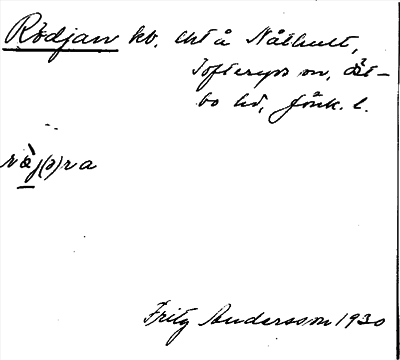 Rödjan kv. cht å Nåthult,
Tofteryds sn, Öst-
bo hd, Jönk. l.
ræ̀j(ə)ra
Fritz Andersson 1930